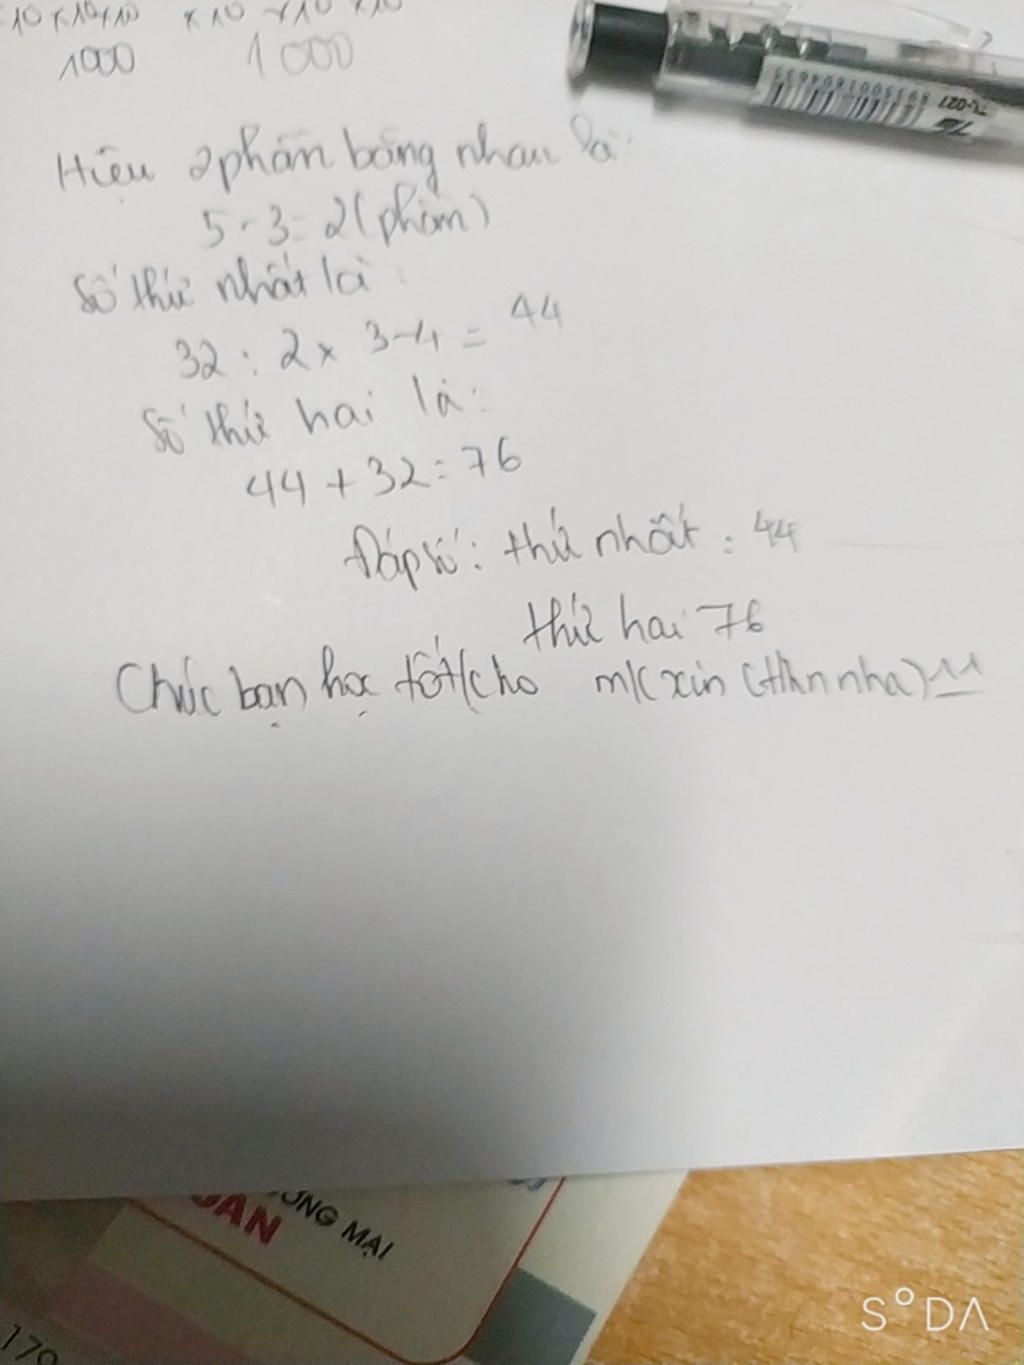 10 x 10 x 10 x 10 x 10 x 10
1000 1000
TL-027
8935001804635
Hiệu 2 phần bằng nhau là:
5 - 3 = 2 (phần)
Số thứ nhất là:
32 : 2 x 3 - 4 = 44
Số thứ hai là:
44 + 32 = 76
Đáp số: thứ nhất: 44
thứ hai 76
Chúc bạn học tốt (cho mk xin ctlhn nha) ^^
ƯƠNG MẠI
OAN
179
SODA